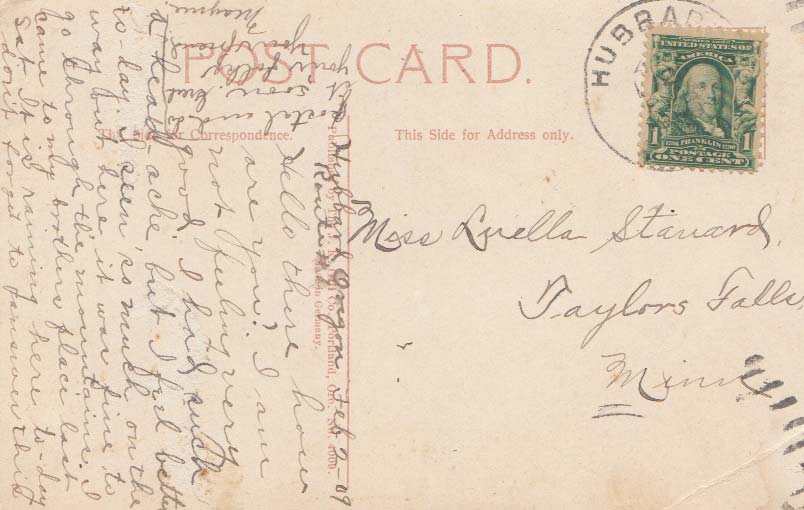 POST CARD.
This Side for Correspondence.
This Side for Address only.
HUBBARD
UNITED STATES OF
AMERICA
1 1
FRANKLIN
POSTAGE
ONE CENT
Miss Luella Stanard,
Taylors Falls
Minn
Portland, Ore. No.
in Germany.
Hubbard Oregon Feb 2-09
Route #1
Hello there how
are you? I am
not feeling very
good I had such
a head-ache, but I feel better
to-day. I seen so much on the
way out here it was fine to
go through the mountains. I
came to my brothers place last
Sat. It is raining here to-day
don't forget to answer this
postal and as
soon.
your folks
your friend
Mayme.